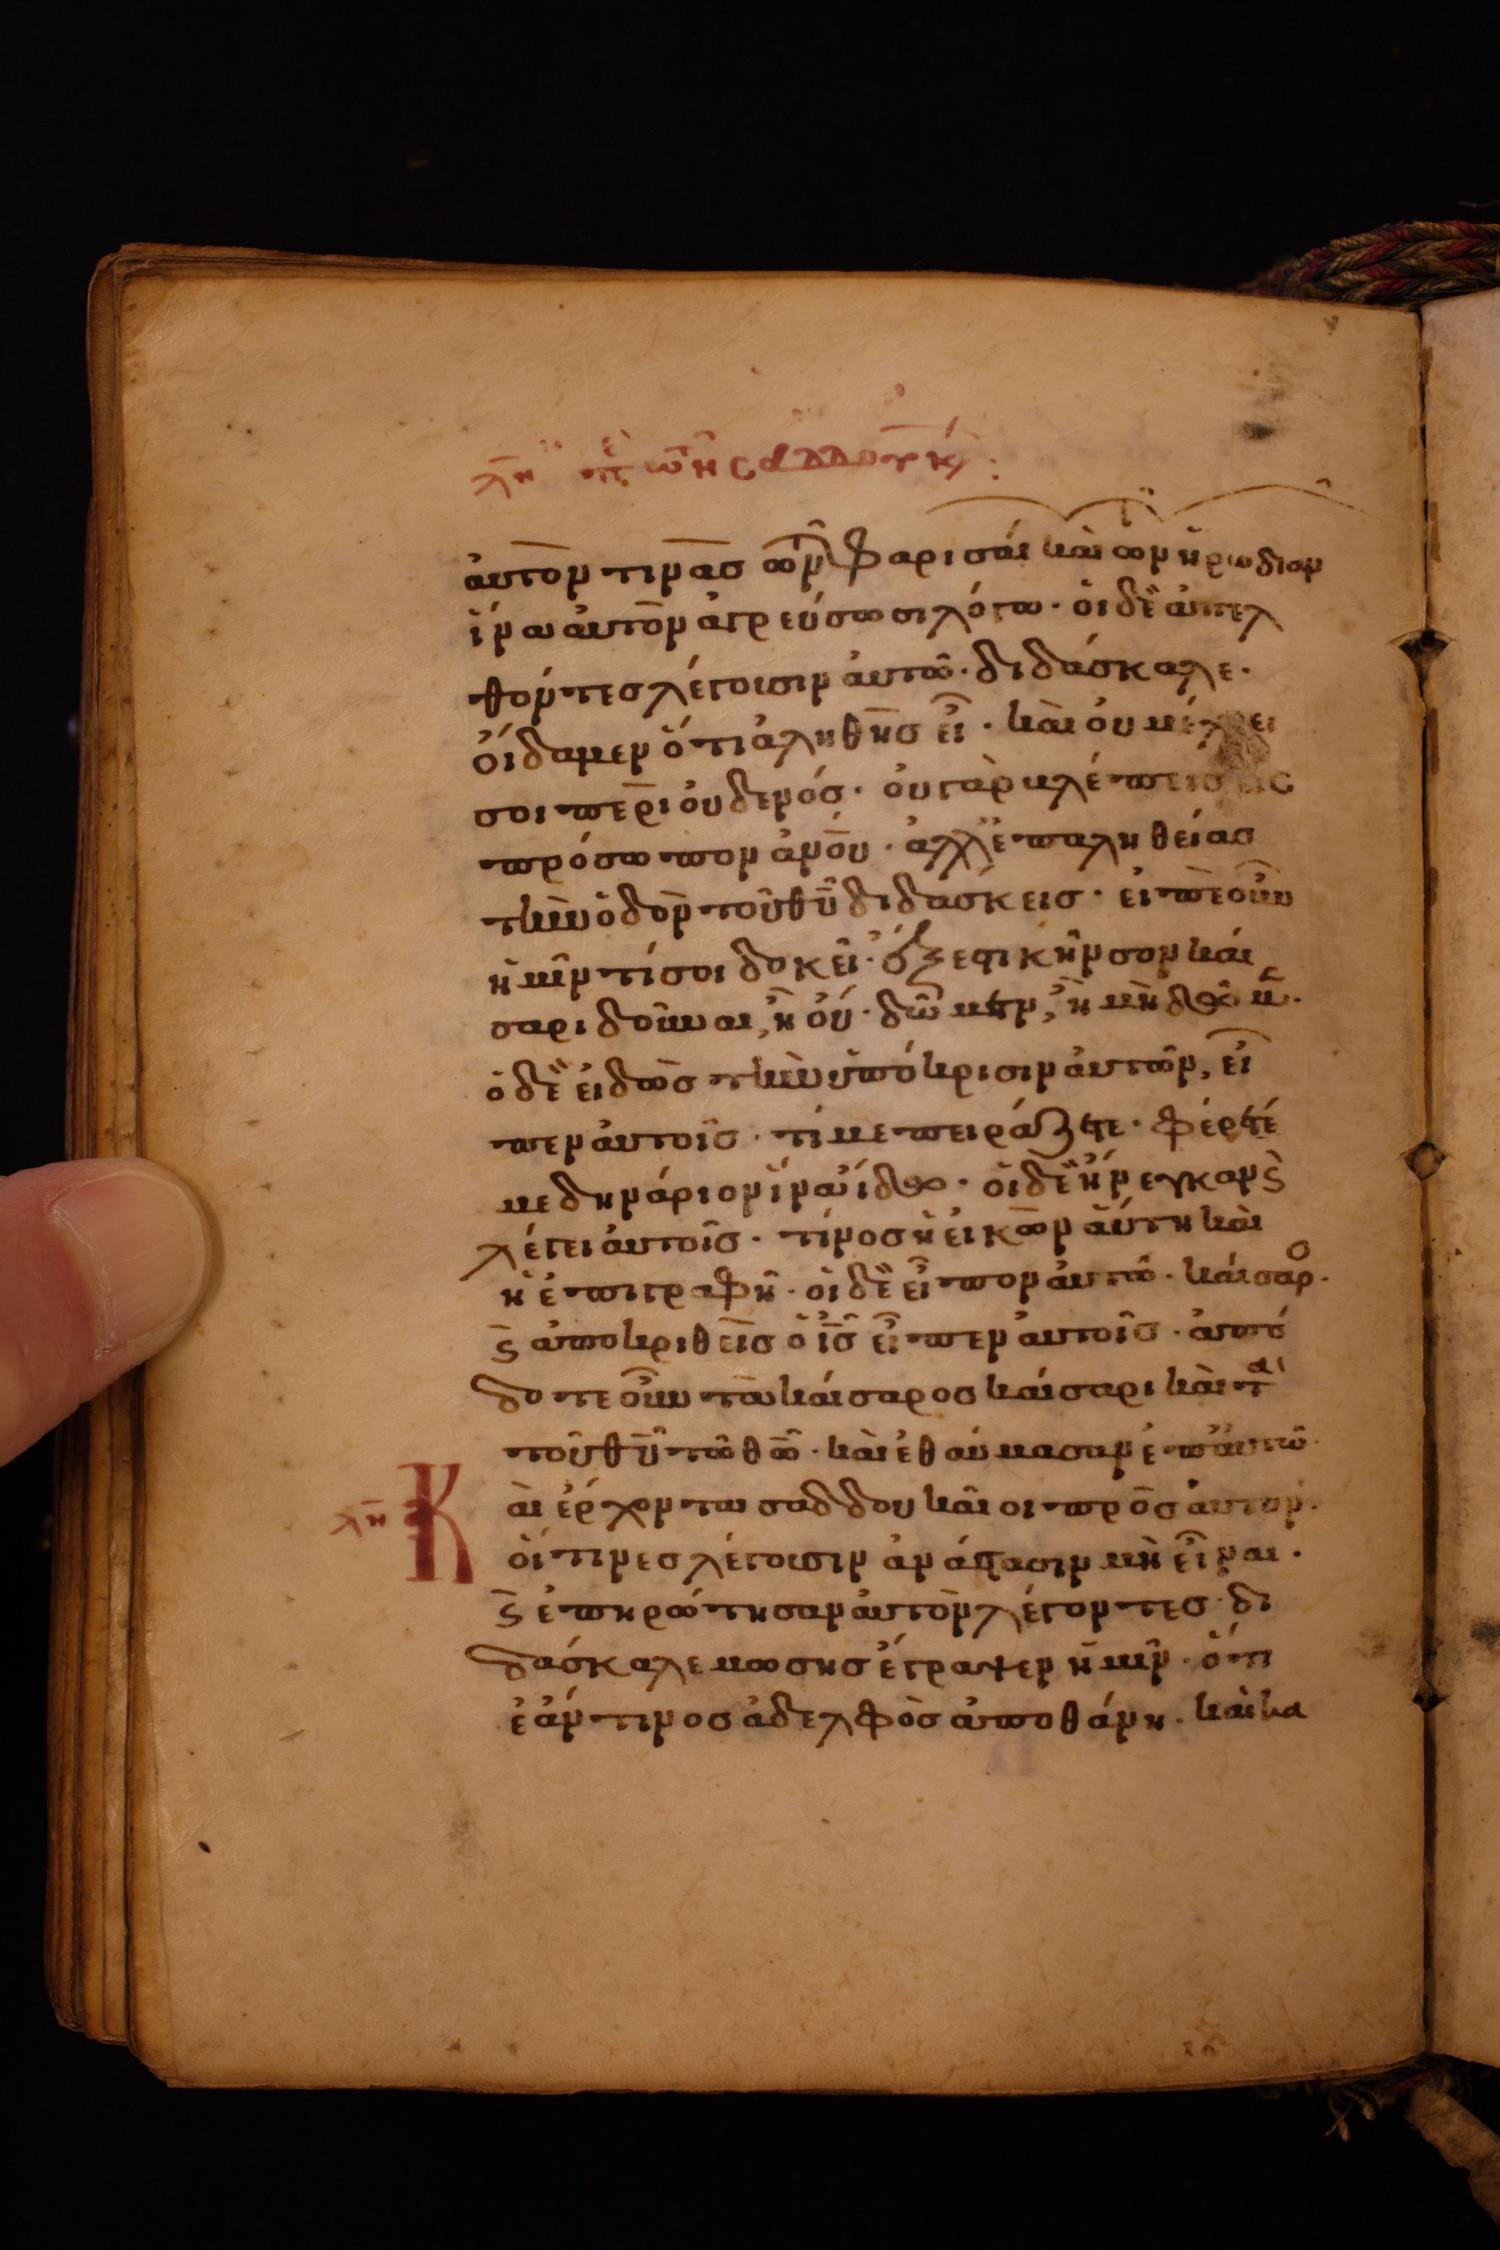 λη πε των σαδδουκ :
ἀυτὸν τινὰσ τῶν φαρισαί καὶ τῶν ἡρωδιαν
ἵνα αυτὸν ἀγρεύσωσι λόγω · ὁι δὲ ἀπελ
θόντεσ λέγουσιν ἀυτῶ · διδάσκαλε ·
ὀίδαμεν ὅτι ἀληθὴσ εἶ · καὶ ὀυ μέλει
σοι περὶ ὀυδενόσ · ὀυ γὰρ βλέπεισ εις
πρόσωπον ἀνου · ἀλλ ἐπαληθείασ
τὴν ὁδὸν τοῦ θυ διδασκεισ · ἐιπὲ οὖν
ἡμῖν τί σοι δοκεῖ · ἔξεστι κῆνσον καί
σαρι δοῦναι, ἢ ὀύ · δῶμεν, ἢ μὴ δῶμ ·
ὁ δὲ ἐιδὼσ τὴν ὑπόκρισιν ἀυτῶν, εἶ
πεν ἀυτοῖσ · τί με πειράζετε · φέρετέ
με δηνάριον ἵνα ἴδω · ὁι δὲ ἤνεγκαν ϛ
λέγει ἀυτοῖσ · τίνοσ ἡ ἐικὼν ἅυτη καὶ
ἡ ἐπιγραφὴ · ὁι δὲ εἶπον ἀυτῶ · καίσαρο ·
ϛ ἀποκριθεὶσ ὁ ισ εἶπεν ἀυτοῖσ · ἀπό
δοτε οὖν τὰ καίσαροσ καίσαρι καὶ τα
τοῦ θυ τῶ θω · καὶ ἐθαύμασαν ἐπ ἀυτῶ ·
λη Καὶ ἔρχονται σαδδουκαῖοι πρὸσ αυτον ·
ὁίτινεσ λέγουσιν ἀνάστασιν μὴ εἶναι ·
ϛ ἐπηρώτησαν ἀυτὸν λέγοντεσ · δι
δάσκαλε μωσησ ἔγραψεν ἡμῖν · ὅτι
ἐάν τινοσ ἀδελφὸσ ἀποθάνη · καὶ κα